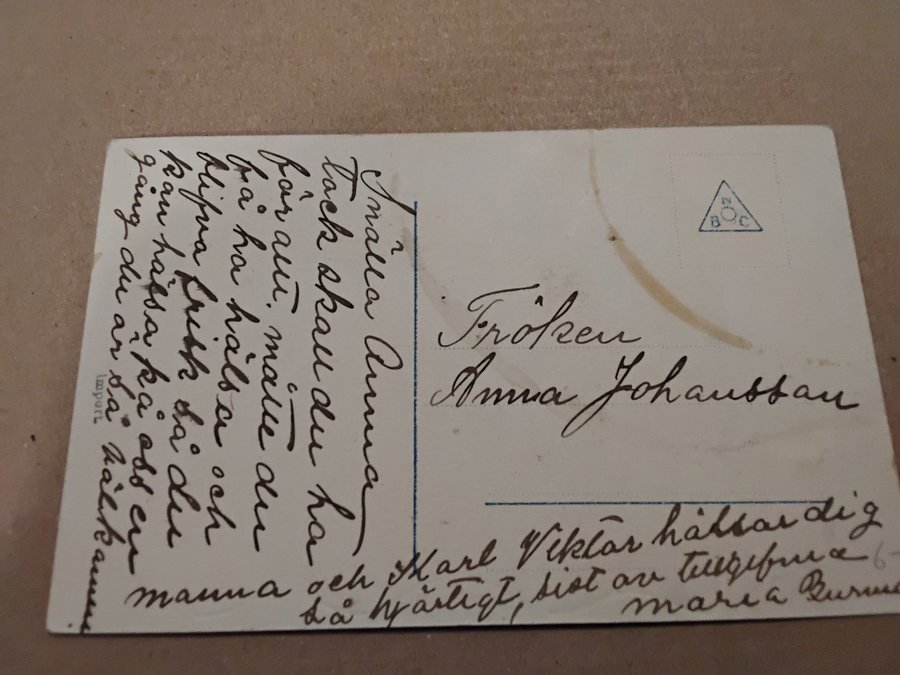 Snälla Anna
Tack skall du ha
för allt. måtte du
få ha hälsa och
blifva frisk så du
kan hälsa på oss en
gång du är så välkommen
mamma och Karl Viktor hälsar dig
så hjärtigt, sist av tillgifna
Maria
Fröken
Anna Johansson
N
B C
Import